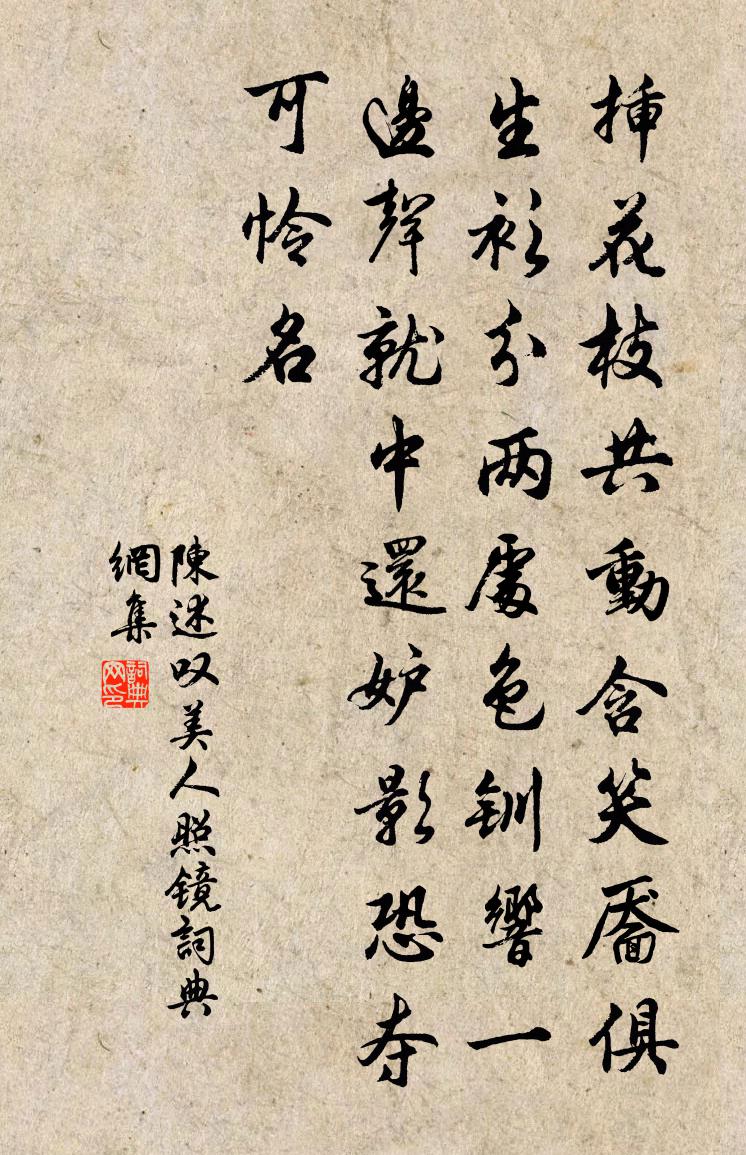 揷花枝共動含笑靨俱
生衫分兩處色釧響一
邊聲就中還妒影恐夺
可怜名
陳述叹美人照镜詞典
網集
詞典
网印